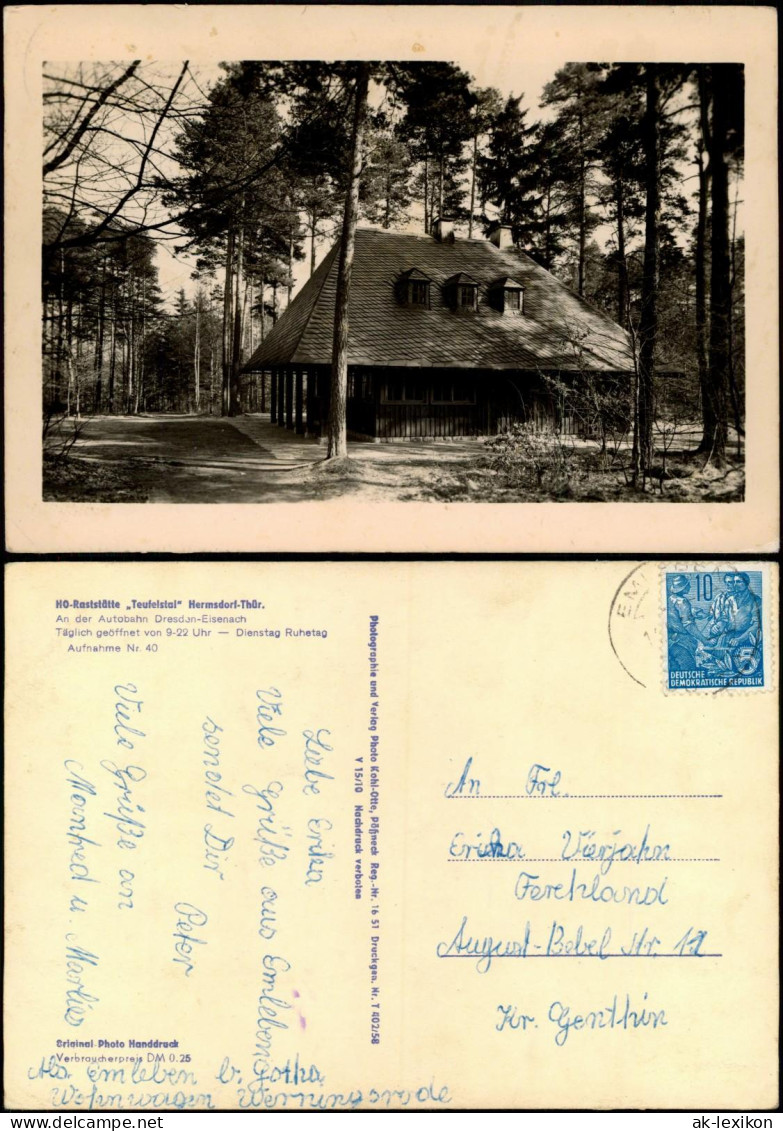 HO-Raststätte „Teufelstal" Hermsdorf-Thür.
An der Autobahn Dresden-Eisenach
Täglich geöffnet von 9-22 Uhr — Dienstag Ruhetag
Aufnahme Nr. 40
Liebe Erika
Viele Grüße aus Emleben
sendet Dir
Peter
Viele Grüße an
Manfred u. Marlies
Original Photo Handdruck
Verbraucherpreis DM 0.25
Abs. Emleben b. Gotha
Wohnwagen Werningsrode
Photographie und Verlag Photo Kahl-Otte, Pößneck Reg.-Nr. 16 51 Druckgen. Nr. T 402/58
V 15/10 Nachdruck verboten
10
5
DEUTSCHE
DEMOKRATISCHE REPUBLIK
An Frl.
Erika Vierjahn
Ferchland
August-Bebel Str. 12
Kr. Genthin
ak-ansichtskarten.de
ak-lexikon